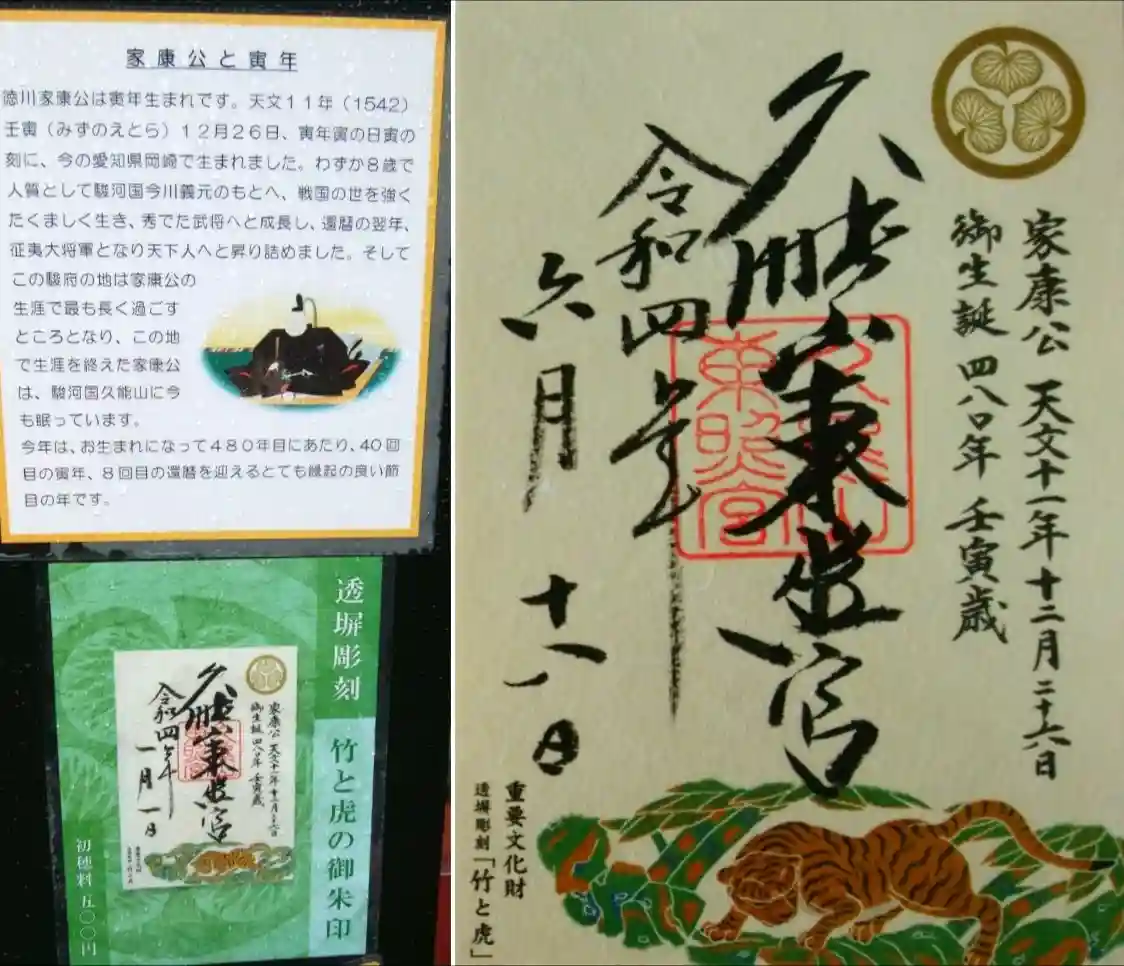 家康公と寅年
徳川家康公は寅年生まれです。天文11年（1542）
壬寅（みずのえとら）12月26日、寅年寅の日寅の
刻に、今の愛知県岡崎で生まれました。わずか8歳で
人質として駿河国今川義元のもとへ、戦国の世を強く
たくましく生き、秀でた武将へと成長し、還暦の翌年、
征夷大将軍となり天下人へと昇り詰めました。そして
この駿府の地は家康公の
生涯で最も長く過ごす
ところとなり、この地
で生涯を終えた家康公
は、駿河国久能山に今
も眠っています。
今年は、お生まれになって480年目にあたり、40回
目の寅年、8回目の還暦を迎えるとても縁起の良い節
目の年です。
透塀彫刻
竹と虎の御朱印
家康公 天文十一年十二月二十六日
御生誕 四八〇年 壬寅歳
久能山東照宮
令和四年
一月一日
初穂料 五〇〇円
家康公 天文十一年十二月二十六日
御生誕 四八〇年 壬寅歳
久能山東照宮
令和四年
六月十八日
久能山
東照宮
重要文化財
透塀彫刻「竹と虎」